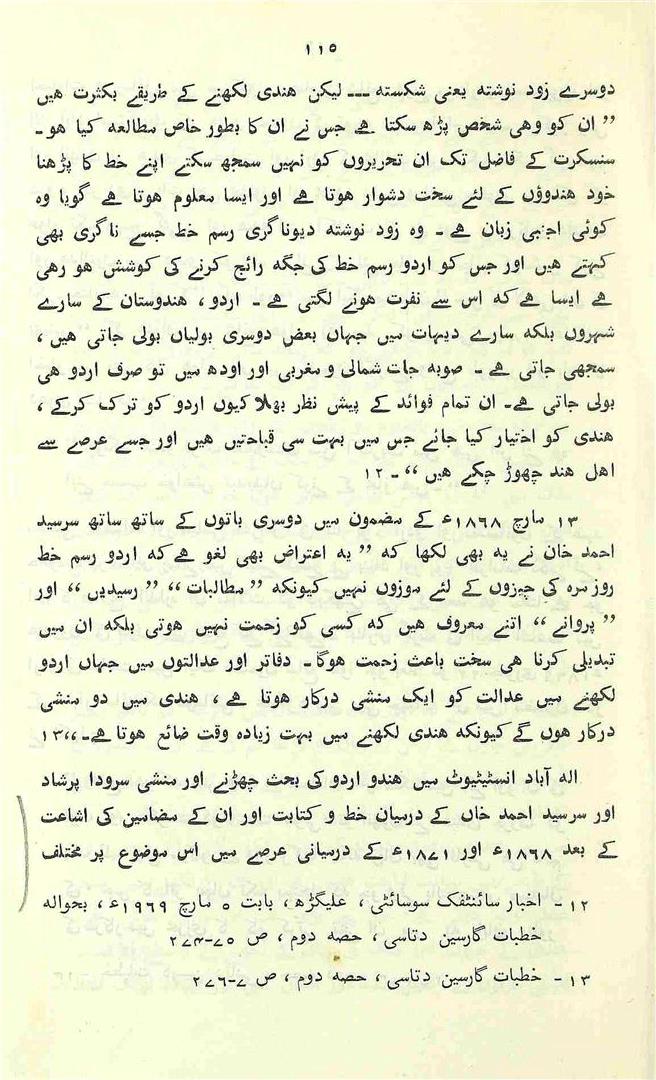 ۱۱۵
دوسرے زود نوشتہ یعنی شکستہ ۔۔۔ لیکن ھندی لکھنے کے طریقے بکثرت ھیں
” ان کو وھی شخص پڑھ سکتا ھے جس نے ان کا بطور خاص مطالعہ کیا ھو ۔
سنسکرت کے فاضل تک ان تحریروں کو نہیں سمجھ سکتے اپنے خط کا پڑھنا
خود ھندوؤں کے لئے سخت دشوار ھوتا ھے اور ایسا معلوم ھوتا ھے گویا وہ
کوئی اجنبی زبان ھے ۔ وہ زود نوشتہ دیوناگری رسم خط جسے ناگری بھی
کہتے ھیں اور جس کو اردو رسم خط کی جگہ رائج کرنے کی کوشش ھو رھی
ھے ایسا ھے کہ اس سے نفرت ھونے لگتی ھے ۔ اردو ، ھندوستان کے سارے
شہروں بلکہ سارے دیہات میں جہاں بعض دوسری بولیاں بولی جاتی ھیں ،
سمجھی جاتی ھے ۔ صوبہ جات شمالی و مغربی اور اودھ میں تو صرف اردو ھی
بولی جاتی ھے۔ ان تمام فوائد کے پیش نظر بھلا کیوں اردو کو ترک کرکے ،
ھندی کو اختیار کیا جائے جس میں بہت سی قباحتیں ھیں اور جسے عرصے سے
اھل ھند چھوڑ چکے ھیں “ ۔ ۱۲
۱۳ مارچ ۱۸۶۸ء کے مضمون میں دوسری باتوں کے ساتھ ساتھ سرسید
احمد خان نے یہ بھی لکھا کہ ” یہ اعتراض بھی لغو ھے کہ اردو رسم خط
روز مرہ کی چیزوں کے لئے موزوں نہیں کیونکہ ” مطالبات “ ” رسیدیں “ اور
” پروانے “ اتنے معروف ھیں کہ کسی کو زحمت نہیں ھوتی بلکہ ان میں
تبدیلی کرنا ھی سخت باعث زحمت ھوگا ۔ دفاتر اور عدالتوں میں جہاں اردو
لکھنے میں عدالت کو ایک منشی درکار ھوتا ھے ، ھندی میں دو منشی
درکار ھوں گے کیونکہ ھندی لکھنے میں بہت زیادہ وقت ضائع ھوتا ھے۔“ ۱۳
الہ آباد انسٹیٹیوٹ میں ھندو اردو کی بحث چھڑنے اور منشی سرودا پرشاد
اور سرسید احمد خاں کے درمیان خط و کتابت اور ان کے مضامین کی اشاعت
کے بعد ۱۸۶۸ء اور ۱۸۷۱ء کے درمیانی عرصے میں اس موضوع پر مختلف
۱۲ ۔ اخبار سائنٹفک سوسائٹی ، علیگڑھ ، بابت ۵ مارچ ۱۹۶۹ء ، بحوالہ
خطبات گارسین دتاسی ، حصہ دوم ، ص ۷۵-۲۷۴
۱۳ ۔ خطبات گارسین دتاسی ، حصہ دوم ، ص ۷-۲۷۶